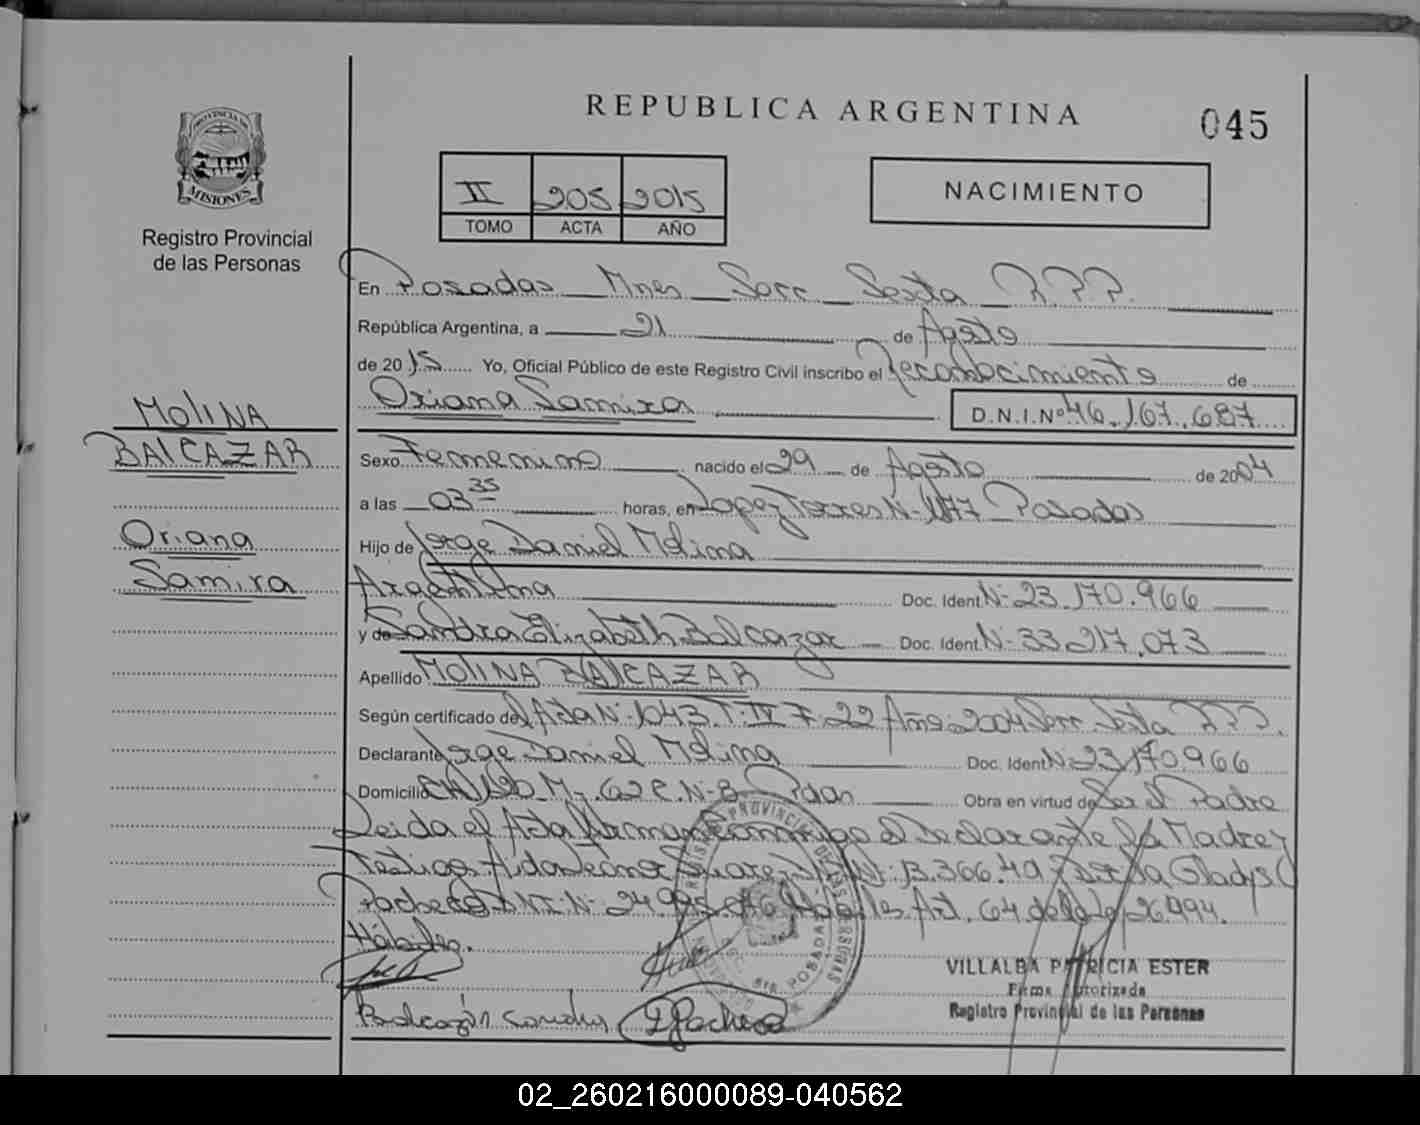 REPUBLICA ARGENTINA
045
PROVINCIA DE
MISIONES
Registro Provincial
de las Personas
II 205 2015
TOMO ACTA AÑO
NACIMIENTO
En Posadas Mnes Secc Sexta R.P.P.
República Argentina, a 21 de Agosto
de 2015 Yo, Oficial Público de este Registro Civil inscribo el Reconocimiento de
Oriana Samira D.N.I.Nº 46.167.687
MOLINA
BALCAZAR
Oriana
Samira
Sexo Femenino nacido el 29 de Agosto de 2004
a las 03 35 horas, en Lopez Torres N- 1177 Posadas
Hijo de Jorge Daniel Molina
Argentina Doc. Ident. N- 23.170.966
y de Sandra Elizabeth Balcazar Doc. Ident. N- 33.217.073
Apellido MOLINA BALCAZAR
Según certificado del Acta N- 1043 T- IV F- 22 Año 2004 Secc. Sexta R.P.P.
Declarante Jorge Daniel Molina Doc. Ident. N- 23.170.966
Domicilio 62 C.N- 8 Pdas Obra en virtud de Ser el Padre
Leida el Acta firman conmigo el Declarante la Madre y
Testigos Aida Suarez 13.366. Gladys
Pacheco DNI N- 24. Art. 64 de la ley 26.994.
Hábiles.
Balcazar Sandra
Pacheco
PROVINCIAL DE LAS PERSONAS
POSADAS
VILLALBA PATRICIA ESTER
Firma Autorizada
Registro Provincial de las Personas
02_260216000089-040562